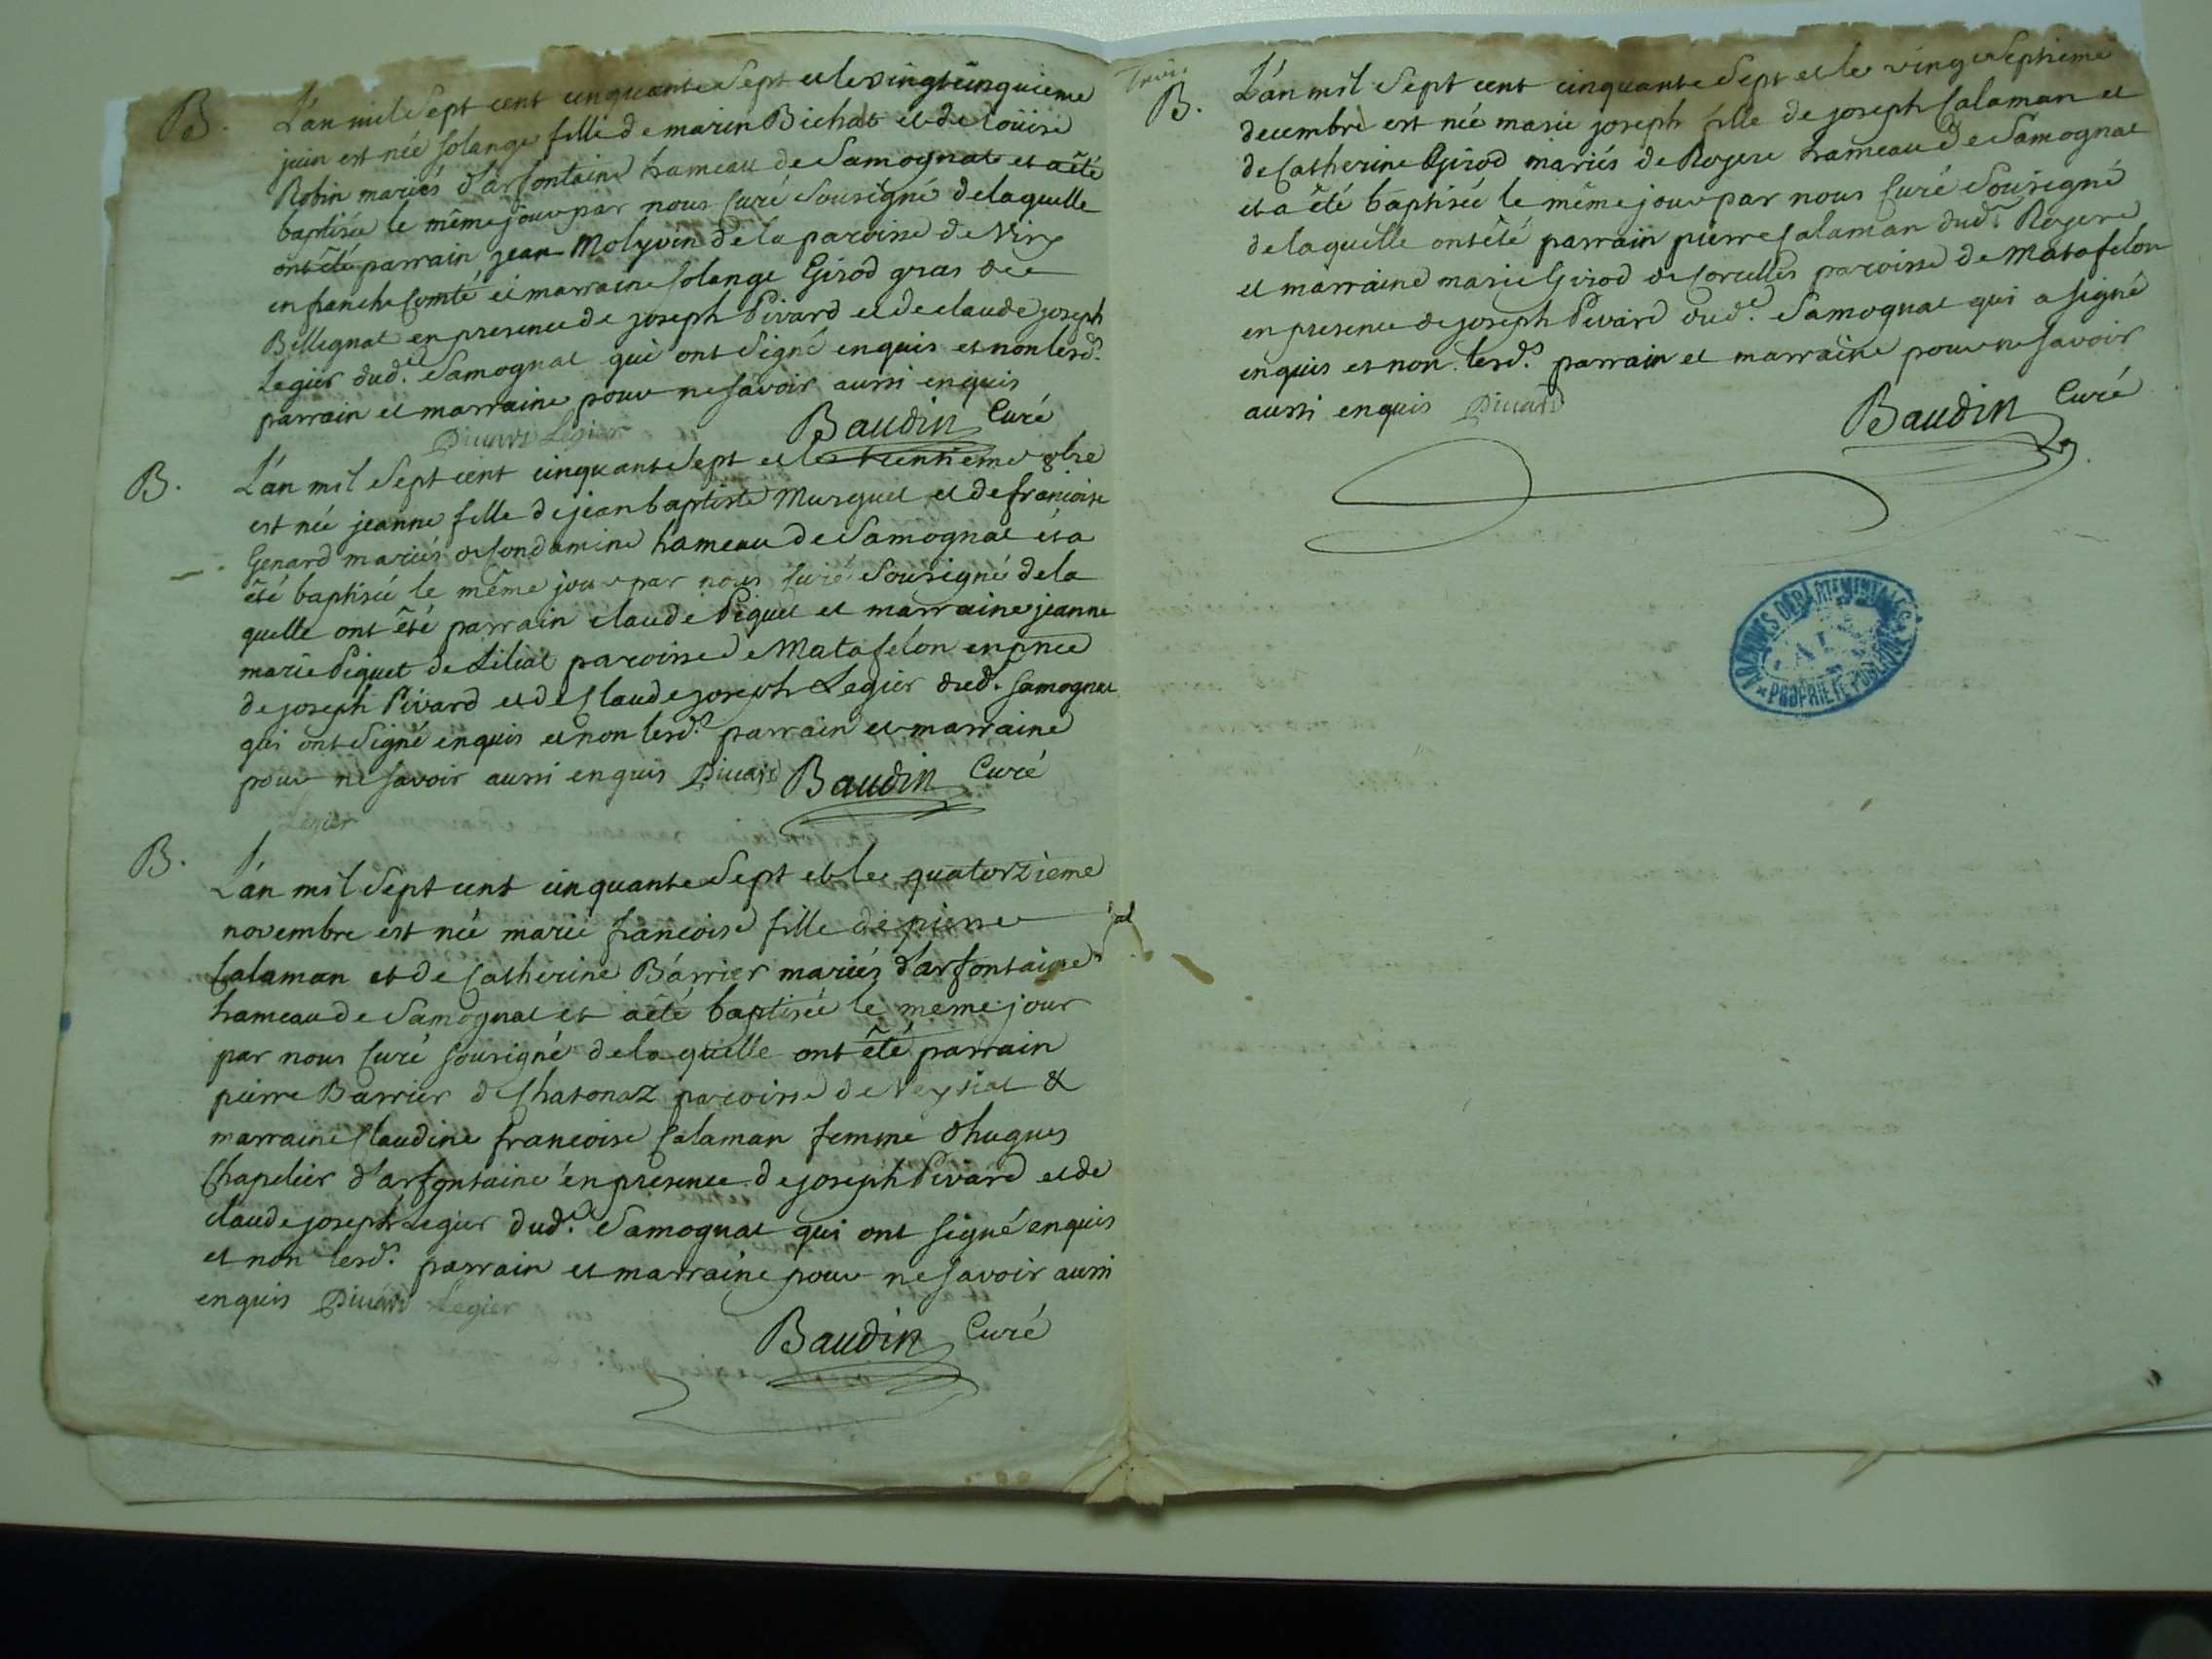 B. L'an mil Sept cent cinquante Sept et le vingt cinquieme
juin est née solange fille de marin Bichat et de loüise
Robin mariés d'arfontaine hameau de Samognat et a été
baptisée le même jour par nous Curé Sousigné de laquelle
ont été parrain jean Molyvin de la paroisse de Viry
en franche Comté et marraine solange Girod gras de
Bellegnat en presence de joseph Pivard et de claude joseph
Legier dud.t Samognat qui ont Signé enquis et non lesd.s
parrain et marraine pour ne savoir aussi enquis
Pivard Legier Baudin Curé
B. L'an mil Sept cent cinquante Sept et le trentieme 8bre
est née jeanne fille de jean baptiste Murguet et de francoise
Genard mariés de Condamine hameau de Samognat et a
été baptisée le même jour par nous Curé Sousigné de la
quelle ont été parrain claude Piguet et marraine jeanne
marie Piguet de Liliat paroisse de Matafelon en pnce
de joseph Pivard et de Claude joseph Legier dud.t Samognat
qui ont Signé enquis et non lesd.s parrain et marraine
pour ne savoir aussi enquis Pivard Baudin Curé
Legier
B. L'an mil Sept cent cinquante Sept et le quatorzieme
novembre est née marie francoise fille de pierre
Calaman et de Catherine Barrier mariés d'arfontaine
hameau de Samognat et a été baptisée le meme jour
par nous Curé sousigné de laquelle ont été parrain
pierre Barrier de Chatonaz paroisse de Veyziat &
marraine Claudine francoise Calaman femme d'hugues
Chapelier d'arfontaine en presence de joseph Pivard et de
claude joseph Legier dud.t Samognat qui ont signé enquis
et non lesd.s parrain et marraine pour ne savoir aussi
enquis Pivard Legier
Baudin Curé
Trois
B. L'an mil Sept cent cinquante Sept et le vingt Septieme
decembre est née marie joseph fille de joseph Calaman et
de Catherine Girod mariés de Rogere hameau de Samognat
et a été baptisée le même jour par nous Curé Sousigné
de laquelle ont été parrain pierre Calaman dud.t Rogere
et marraine marie Girod de Corcelles paroisse de Matafelon
en presence de joseph Pivard dud.t Samognat qui a signé
enquis et non lesd.s parrain et marraine pour ne savoir
aussi enquis Pivard Baudin Curé
ARCHIVES DÉPARTEMENTALES
AIN
PROPRIÉTÉ PUBLIQUE